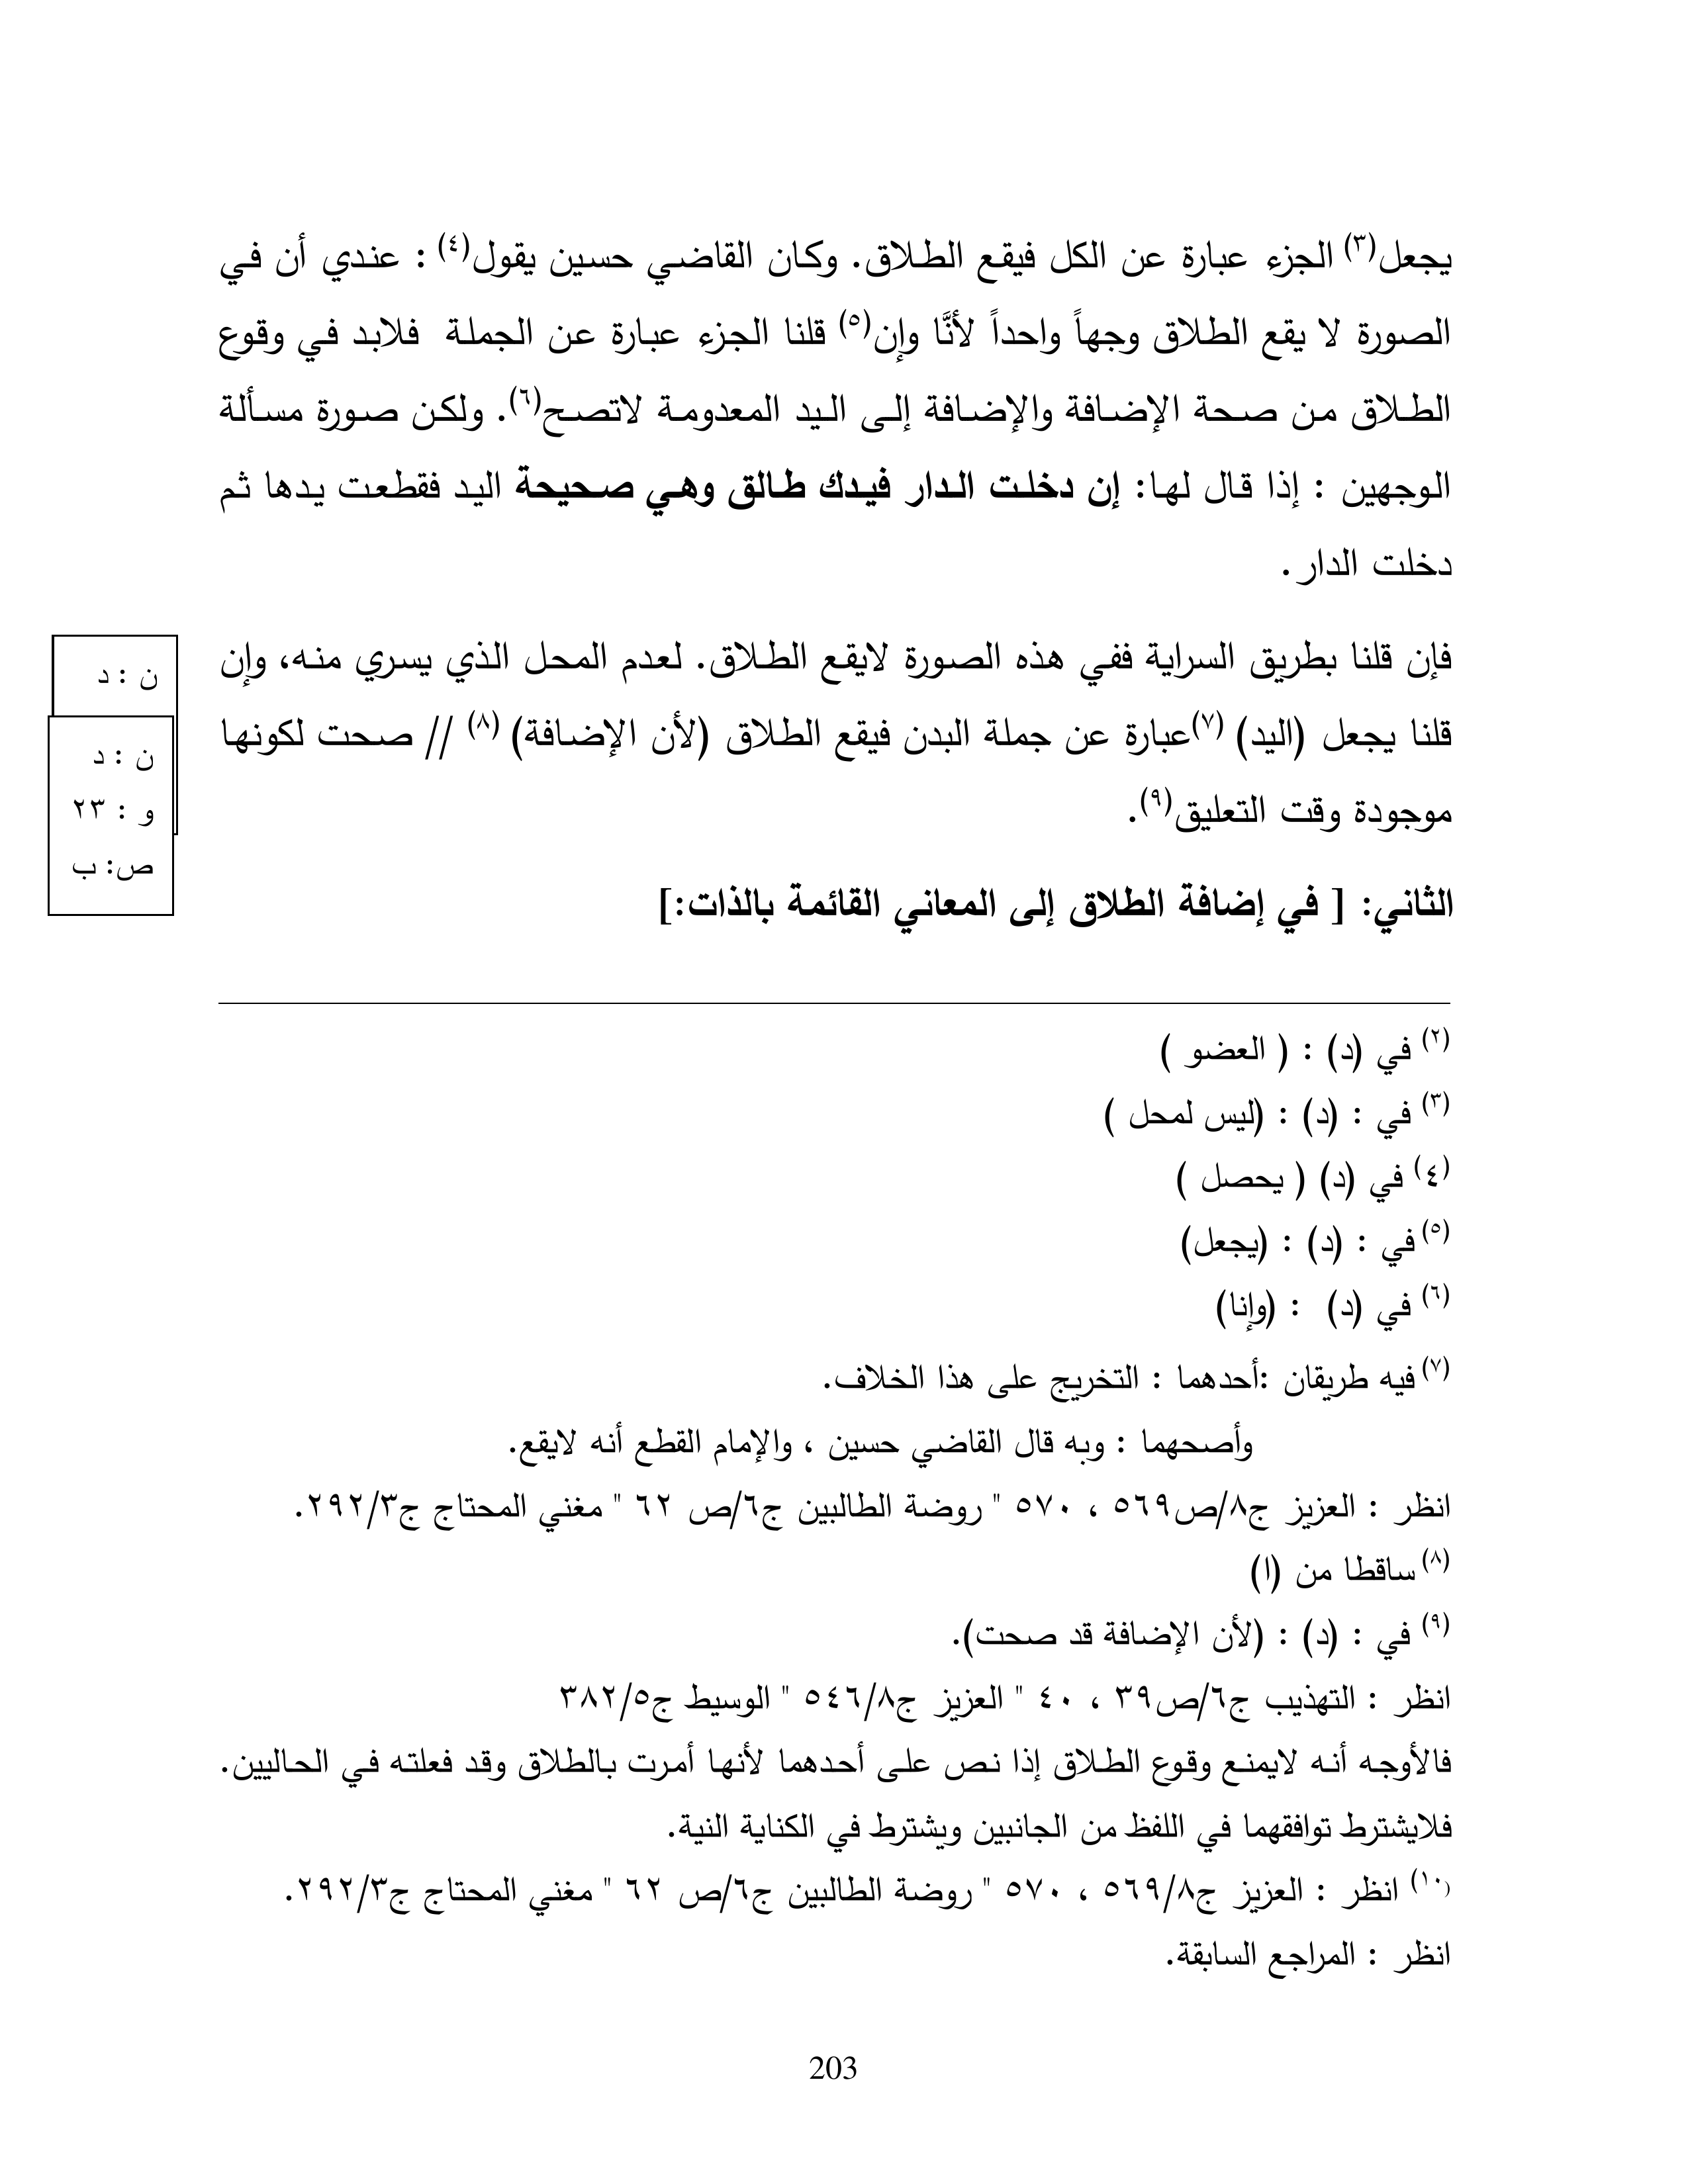 يجعل(٣) الجزء عبارة عن الكل فيقع الطلاق. وكان القاضي حسين يقول(٤) : عندي أن في
الصورة لا يقع الطلاق وجهاً واحداً لأنَّا وإن(٥) قلنا الجزء عبارة عن الجملة فلابد في وقوع
الطلاق من صحة الإضافة والإضافة إلى اليد المعدومة لاتصح(٦). ولكن صورة مسألة
الوجهين : إذا قال لها: إن دخلت الدار فيدك طالق وهي صحيحة اليد فقطعت يدها ثم
دخلت الدار .
فإن قلنا بطريق السراية ففي هذه الصورة لايقع الطلاق. لعدم المحل الذي يسري منه، وإن
قلنا يجعل (اليد) (٧)عبارة عن جملة البدن فيقع الطلاق (لأن الإضافة) (٨) // صحت لكونها
موجودة وقت التعليق(٩).
ن : د
ن : د
و : ٢٣
ص: ب
الثاني: [ في إضافة الطلاق إلى المعاني القائمة بالذات:]
(٢) في (د) : ( العضو )
(٣) في : (د) : (ليس لمحل )
(٤) في (د) ( يحصل )
(٥) في : (د) : (يجعل)
(٦) في (د) : (وإنا)
(٧) فيه طريقان :أحدهما : التخريج على هذا الخلاف.
وأصحهما : وبه قال القاضي حسين ، والإمام القطع أنه لايقع.
انظر : العزيز ج٨/ص٥٦٩ ، ٥٧٠ " روضة الطالبين ج٦/ص ٦٢ " مغني المحتاج ج٢٩٢/٣.
(٨) ساقطا من (ا)
(٩) في : (د) : (لأن الإضافة قد صحت).
انظر : التهذيب ج٦/ص٣٩ ، ٤٠ " العزيز ج٥٤٦/٨ " الوسيط ج٣٨٢/٥
فالأوجه أنه لايمنع وقوع الطلاق إذا نص على أحدهما لأنها أمرت بالطلاق وقد فعلته في الحاليين.
فلايشترط توافقهما في اللفظ من الجانبين ويشترط في الكناية النية.
(١٠) انظر : العزيز ج٥٦٩/٨ ، ٥٧٠ " روضة الطالبين ج٦/ص ٦٢ " مغني المحتاج ج٢٩٢/٣.
انظر : المراجع السابقة.
203